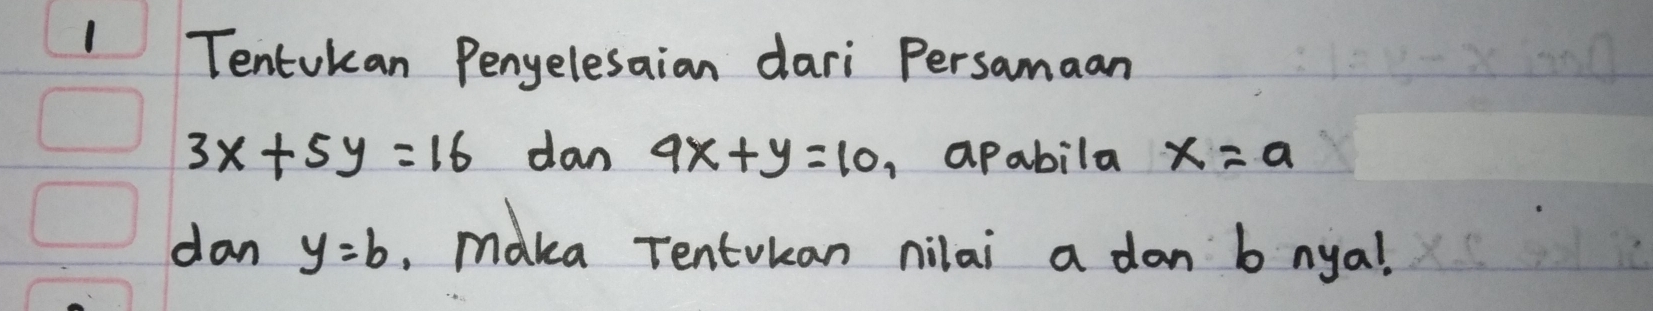 1 Tentukan Penyelesaian dari Persamaan
3x+5y=16 dan 4x+y=10, apabila x=a
dan y=b, maka Tentukan nilai a dan b nya!